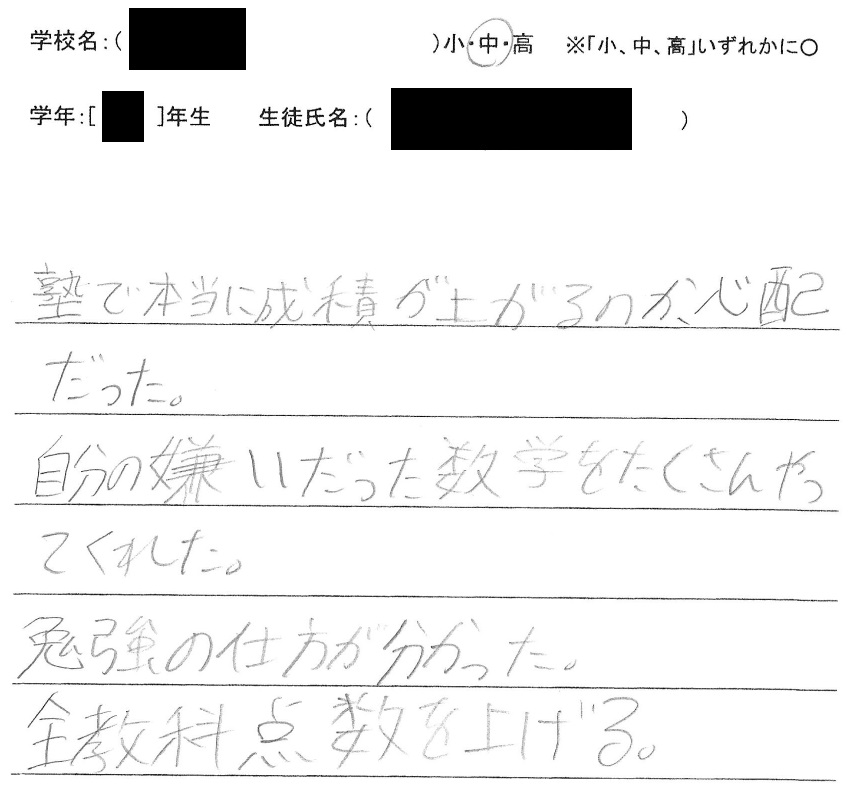 学校名：( )小・中・高 ※「小、中、高」いずれかに〇
学年：[ ]年生 生徒氏名：( )
塾で本当に成積が上がるのか、心配
だった。
自分の嫌いだった数学をたくさんやっ
てくれた。
勉強の仕方が分かった。
全教科点数を上げる。